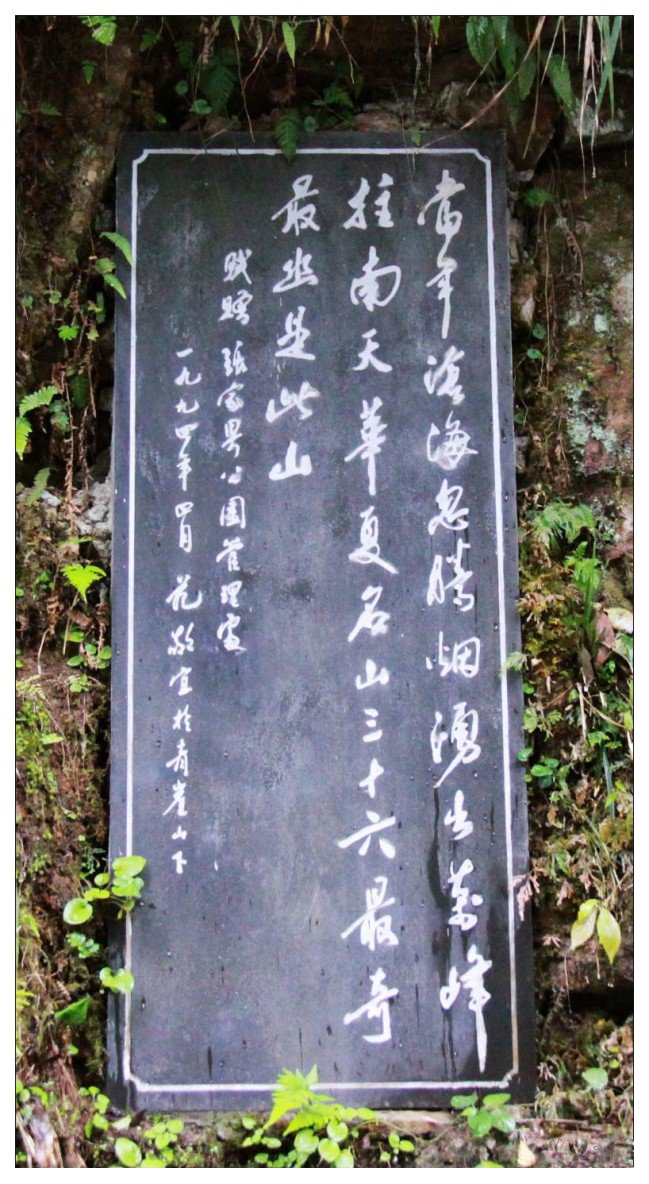 當年滄海忽騰烟湧出萬峰
拄南天華夏名山三十六最奇
最幽是此山
賦贈 張家界公園管理處
一九九四年四月 范敬宜於青崖山下